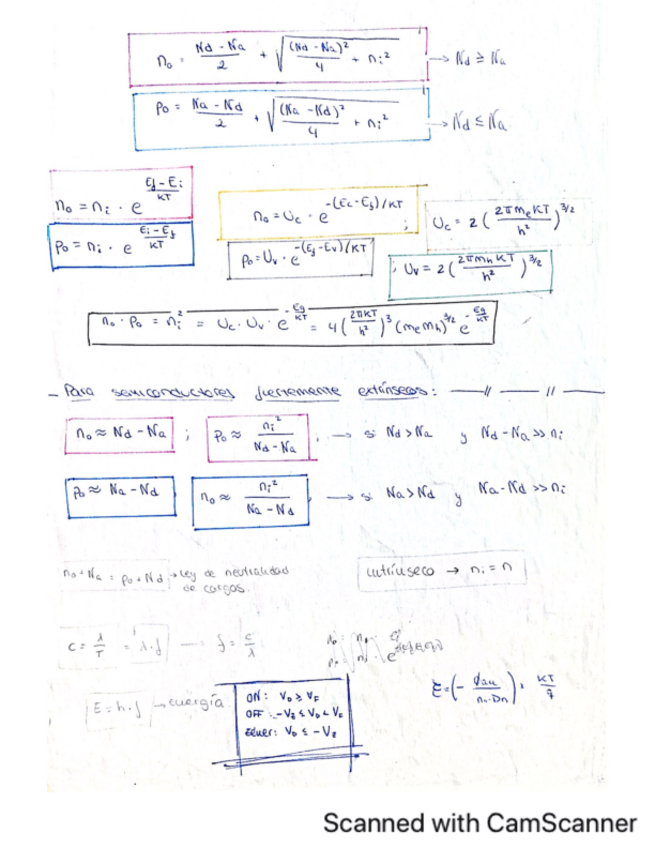 n₀ = (Nd - Na)/2 + √((Nd - Na)²/4 + ni²) → Nd ≥ Na
p₀ = (Na - Nd)/2 + √((Na - Nd)²/4 + ni²) → Nd ≤ Na
n₀ = ni · e^((Ef - Ei)/KT)
p₀ = ni · e^((Ei - Ef)/KT)
n₀ = Uc · e^(-(Ec - Ef)/KT) ;
p₀ = Uv · e^(-(Ef - Ev)/KT) ;
Uc = 2 (2πmeKT/h²)^(3/2)
Uv = 2 (2πmhKT/h²)^(3/2)
n₀ · p₀ = ni² = Uc · Uv · e^(-Eg/KT) = 4 (2πKT/h²)³ (me mh)^(3/2) e^(-Eg/KT)
- Para semiconductores fuertemente extrínsecos: — // — // —
n₀ ≈ Nd - Na ; p₀ ≈ ni²/(Nd - Na) ; → si Nd > Na y Nd - Na >> ni
p₀ ≈ Na - Nd n₀ ≈ ni²/(Na - Nd) → si Na > Nd y Na - Nd >> ni
n₀ + Na = p₀ + Nd → Ley de neutralidad
de cargas.
intrínseco → ni = n
c = λ/T = λ·f → f = c/λ
E = h·f → energía
ON: VD ≥ VF
OFF: -VZ ≤ VD < VF
zener: VD ≤ -VZ